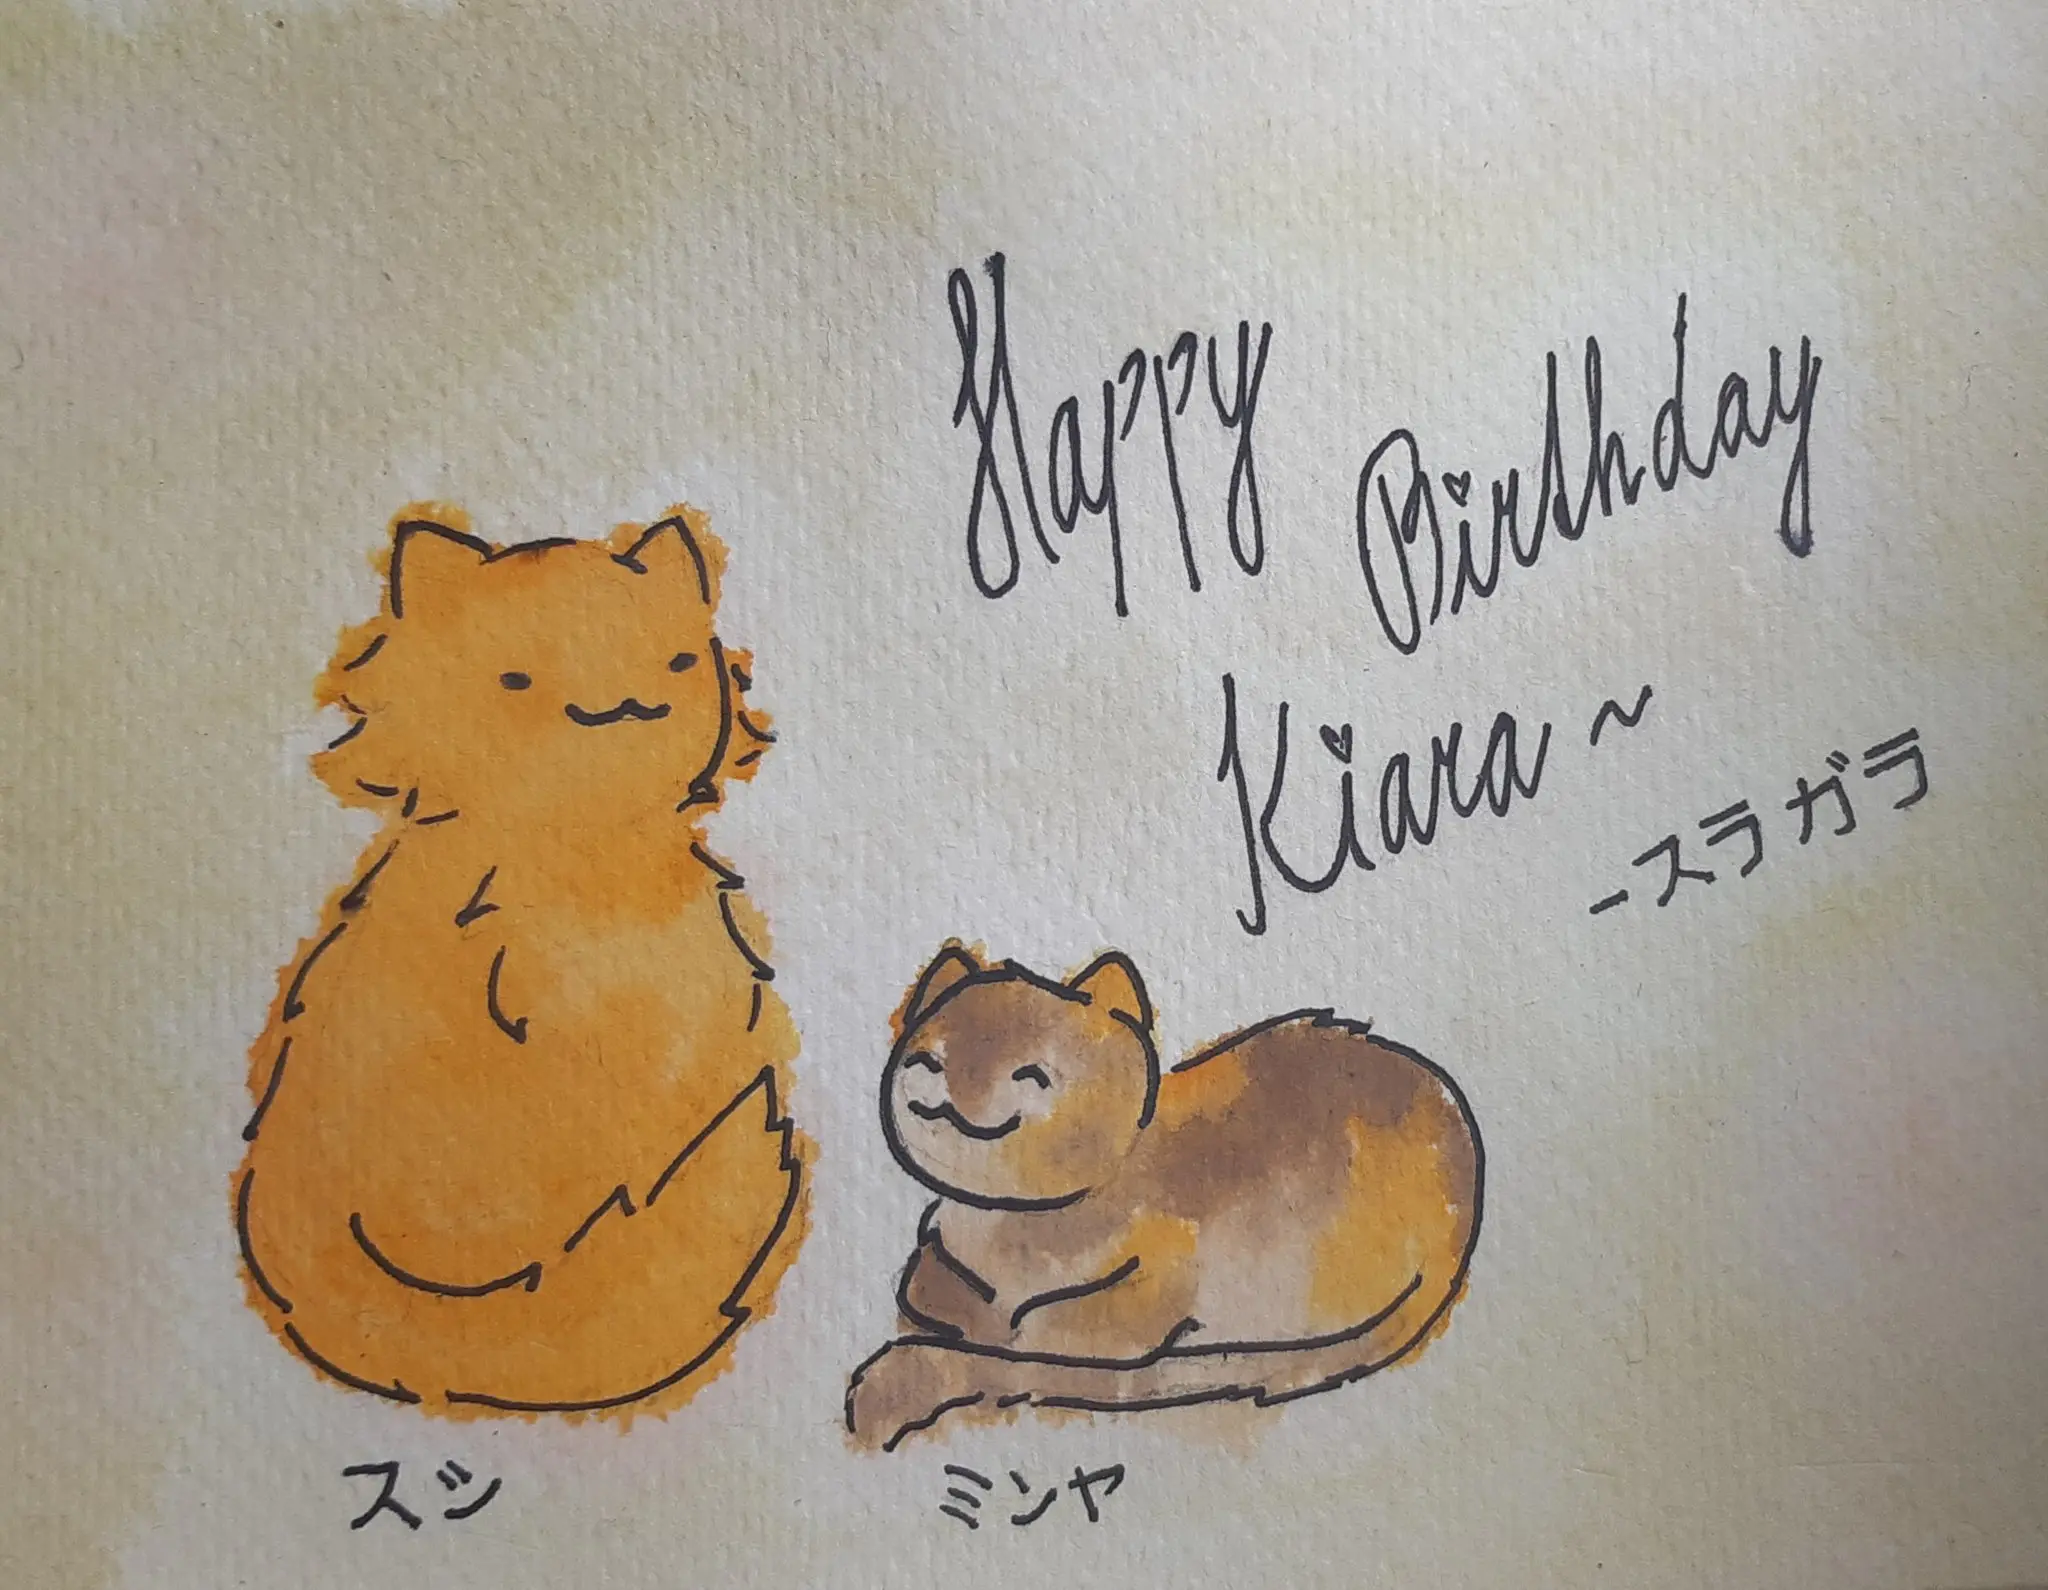 Happy
Birthday
Kiara~
-スラガラ
スシ
ミンヤ